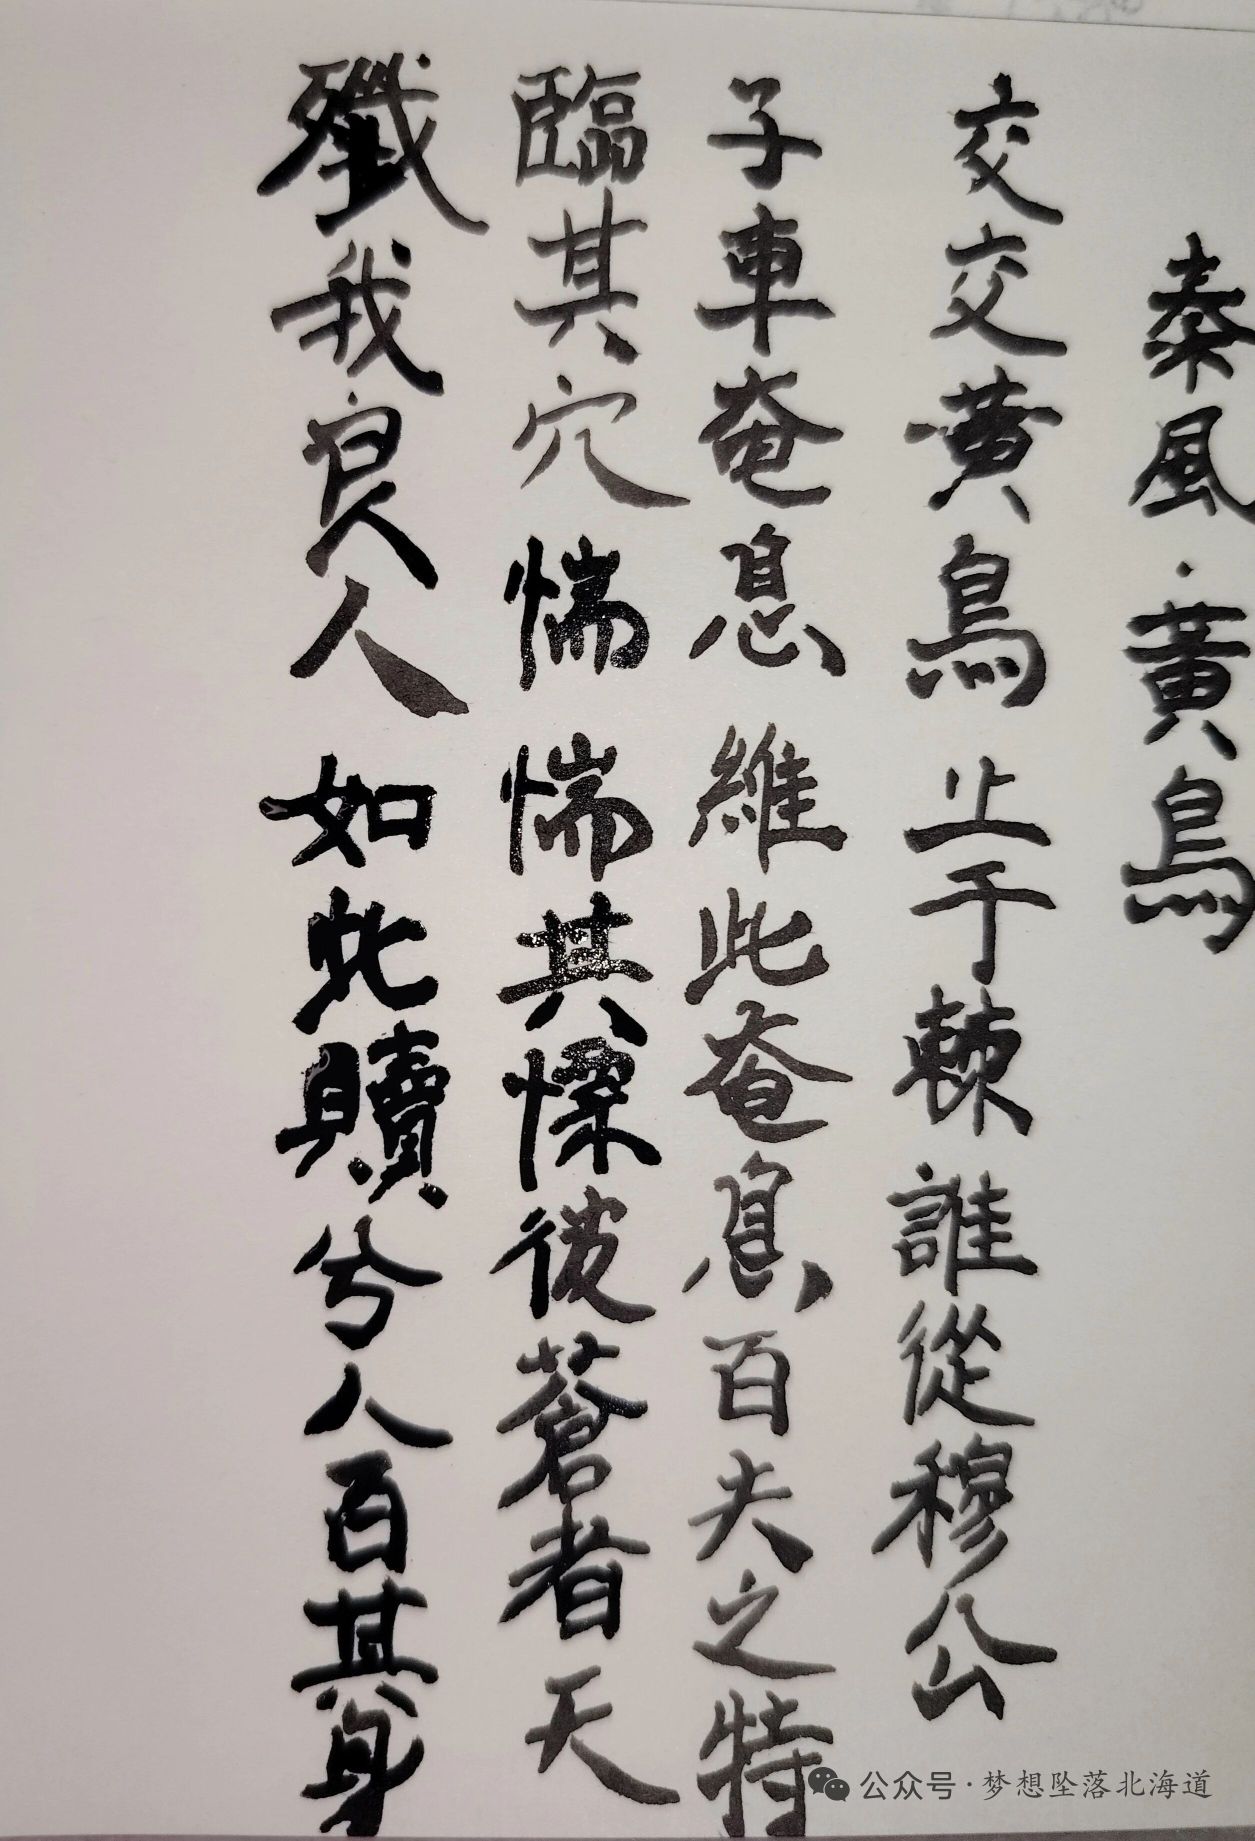 秦風·黃鳥
交交黄鳥止于棘誰從穆公
子車奄息維此奄息百夫之特
臨其穴惴惴其慄彼蒼者天
殲我良人如此贖兮人百其身
公众号·梦想坠落北海道